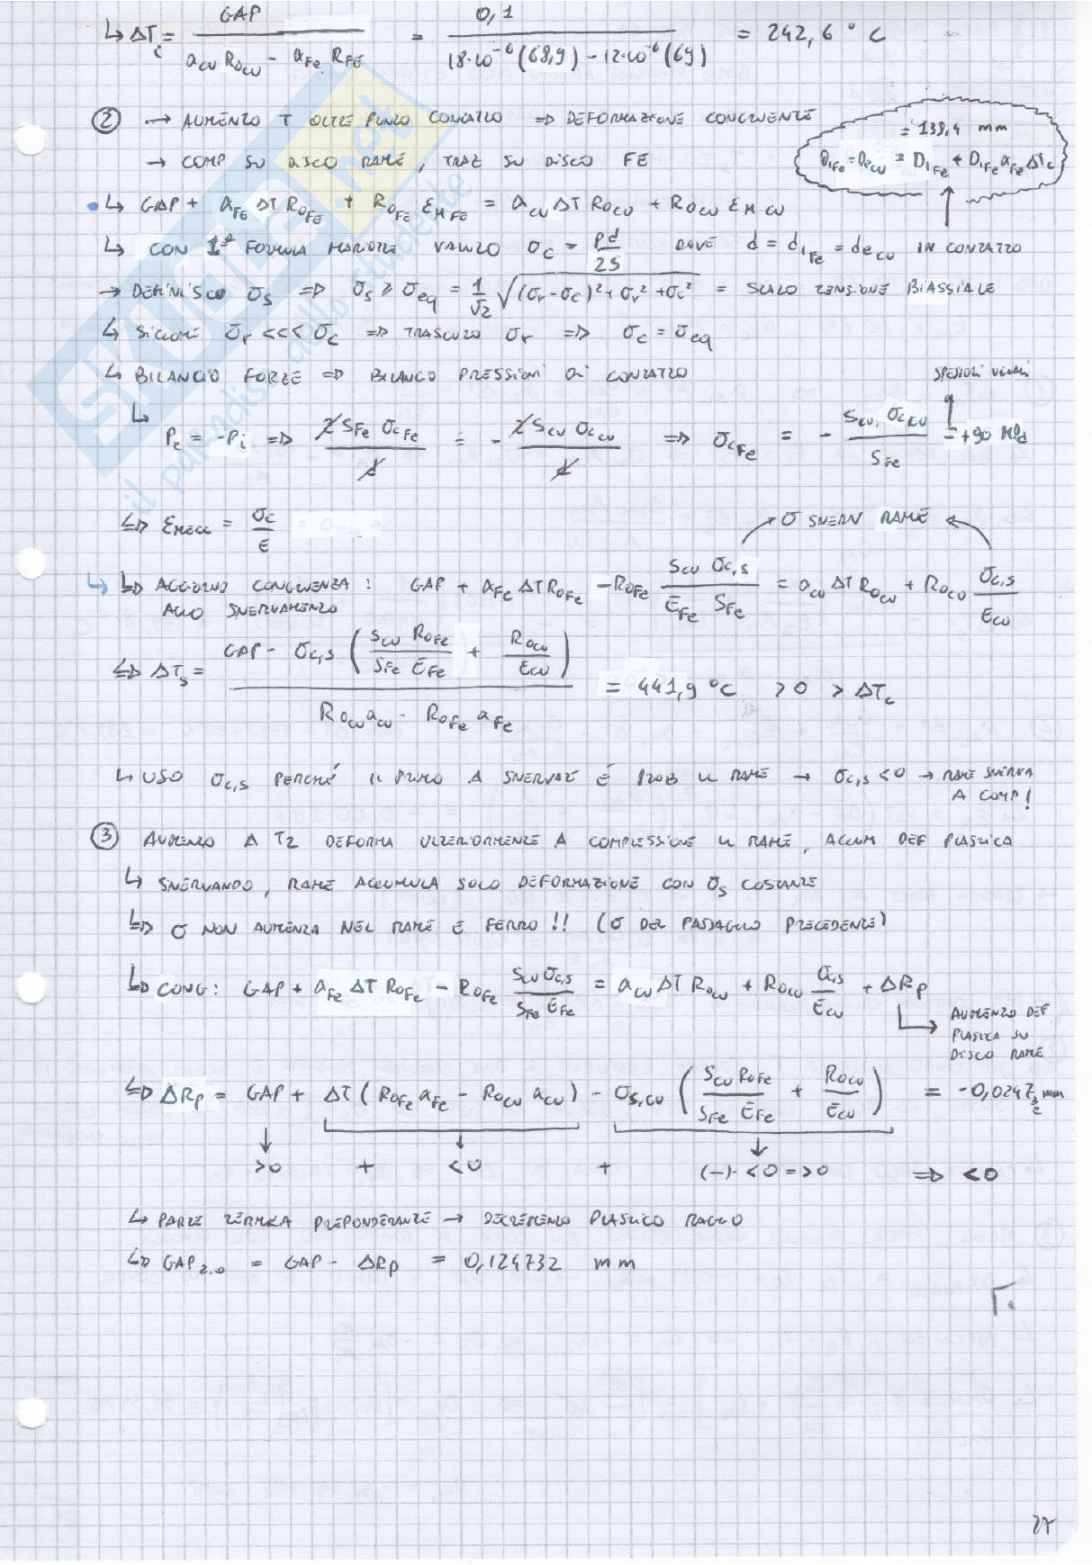 ↳ ΔTc = GAP / (αcu Rocu - αFe RFe) = 0,1 / (18·10⁻⁶ (68,9) - 12·10⁻⁶ (69)) = 242,6 ° C
② → AUMENTO T OLTRE PUNTO CONTATTO ⇒ DEFORMAZIONE CONGRUENTE
= 139,4 mm
D1Fe = D2cu = D1Fe + D1Fe αFe ΔTc
→ COMP SU DISCO RAME, TRAZ SU DISCO FE
↳ GAP + αFe ΔT RoFe + RoFe εM Fe = αcu ΔT Rocu + Rocu εM cu
↳ CON 1ª FORMULA MARIOTTE VALUTO σc = Pd / 2S DOVE d = diFe = decu IN CONTATTO
→ DEFINISCO σs ⇒ σs ≥ σeq = 1/√2 √((σr-σc)² + σr² + σc²) = STATO TENSIONE BIASSIALE
↳ SICCOME σr <<< σc ⇒ TRASCURO σr ⇒ σc = σeq
↳ BILANCIO FORZE ⇒ BILANCIO PRESSIONI DI CONTATTO
SPESSORI UGUALI
↳ Pe = -Pi ⇒ 2 SFe σcFe / d = - 2 Scu σccu / d ⇒ σcFe = - Scu, σccu / SFe = +90 MPa
↳ εMECC = σc / E
σ SNERV RAME
↳ AGGIORNO CONGRUENZA : GAP + αFe ΔT RoFe - RoFe Scu σc,s / EFe SFe = αcu ΔT Rocu + Rocu σc,s / Ecu
ALLO SNERVAMENTO
↳ ΔTs = GAP - σc,s (Scu RoFe / SFe EFe + Rocu / Ecu) / (Rocu αcu - RoFe αFe) = 441,9 °C > 0 > ΔTc
↳ USO σc,s PERCHÉ IL PRIMO A SNERVARE È PROB IL RAME → σc,s < 0 → RAME SNERVA
A COMP!
③ AUMENTO A T2 DEFORMA ULTERIORMENTE A COMPRESSIONE IL RAME, ACCUM DEF PLASTICA
↳ SNERVANDO, RAME ACCUMULA SOLO DEFORMAZIONE CON σs COSTANTE
↳ σ NON AUMENTA NEL RAME E FERRO !! (σ DEL PASSAGGIO PRECEDENTE)
↳ CONG : GAP + αFe ΔT RoFe - RoFe Scu σc,s / SFe EFe = αcu ΔT Rocu + Rocu σc,s / Ecu + ΔRp
AUMENTO DEF
PLASTICA SU
DISCO RAME
↳ ΔRp = GAP + ΔT (RoFe αFe - Rocu αcu) - σs,cu (Scu RoFe / SFe EFe + Rocu / Ecu) = mm
>0 + <0 + (-)· <0 => 0 ⇒ <0
↳ PARTE TERMICA PREPONDERANTE → DECREMENTO PLASTICO RAGGIO
↳ GAP2.0 = GAP - ΔRp = 0,124732 mm
27
SKUOLA.net
il paradiso dello studente